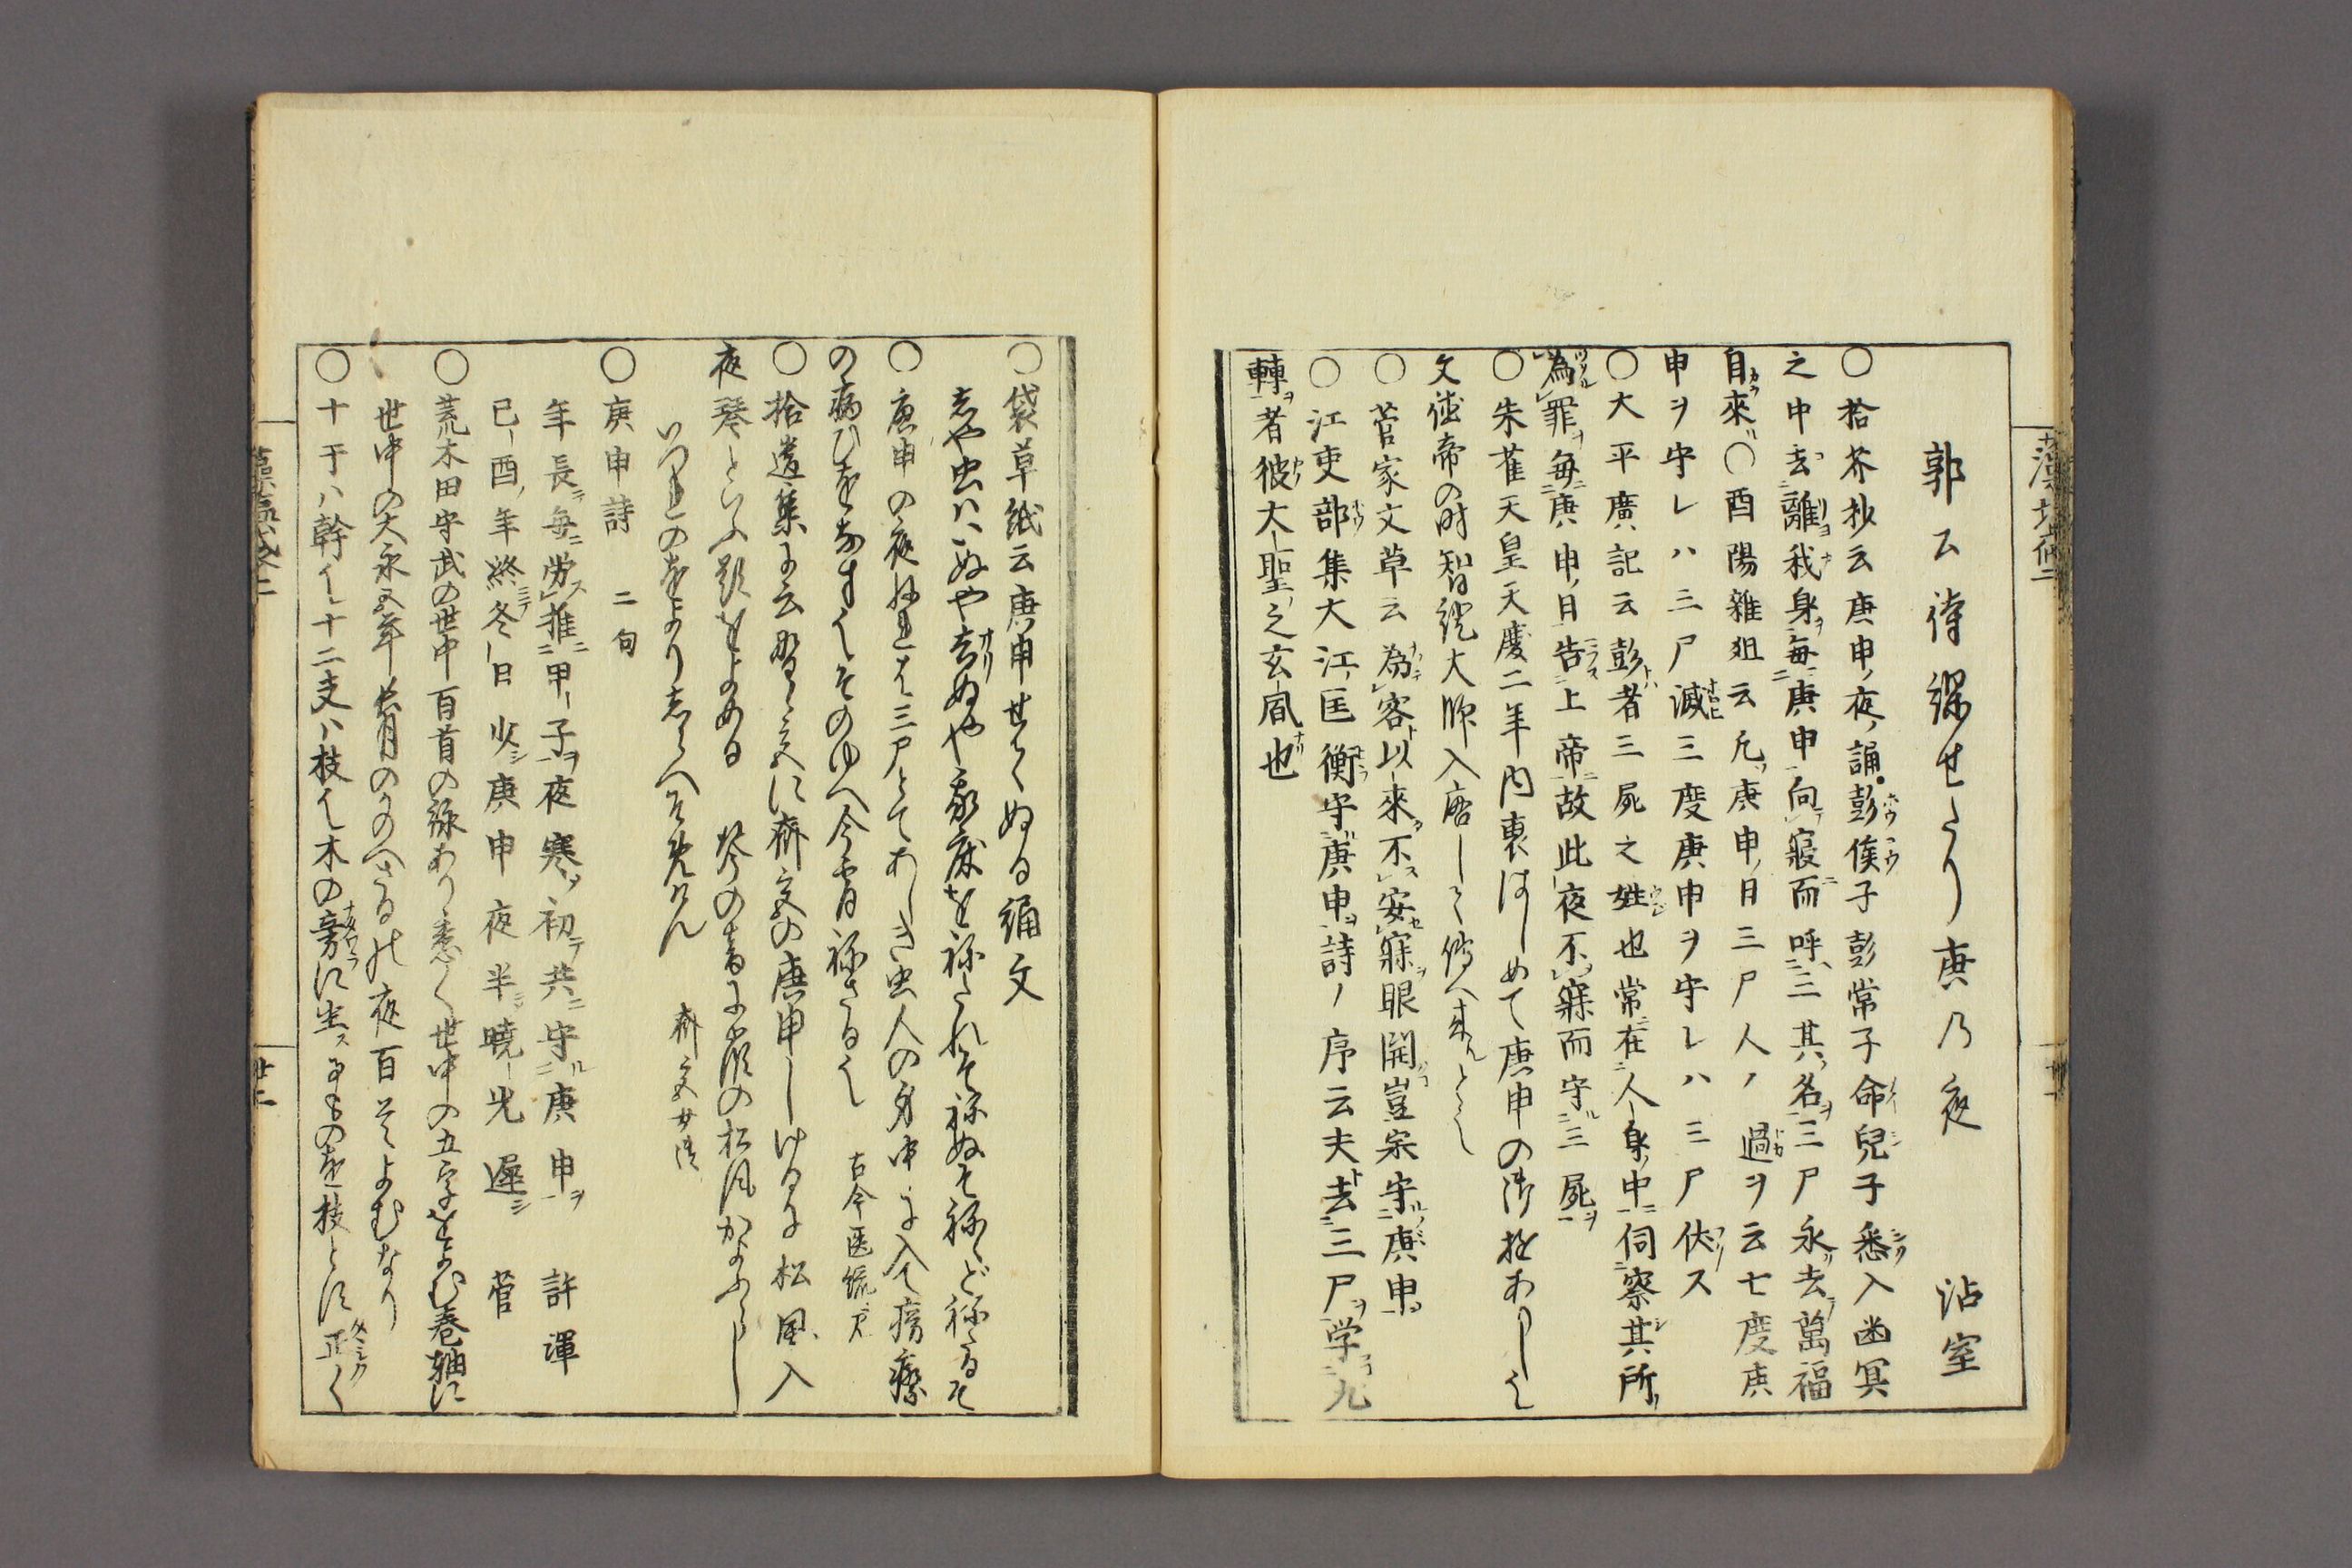 郭公待儛せたり庚乃夜　沾室
○拾芥抄云庚申夜誦彭侯子彭常子命兒子悉入幽冥
之中去離我身每庚申向寢而呼三其名三尸永去萬福
自來○酉陽雜俎云凡庚申日三尸人ノ過ヲ云七度庚
申ヲ守レハ三尸滅三度庚申ヲ守レハ三尸伏ス
○大平廣記云彭者三屍之姓也常在人身中伺察其所
為罪每庚申日告上帝故此夜不寐而守三屍
○朱雀天皇天慶二年内裏はしめて庚申の御遊ありし也
文徳帝の時智證大師入唐して傳へ来ると也
○菅家文草云為客以來不安寐眼開豈栄守庚申
○江吏部集大江匡衡守庚申詩ノ序云夫去三尸学九
轉者彼大聖之玄風也
○袋草紙云庚申せてぬる誦文
志や虫ハいぬや去ぬや我床を祢たれそ祢ぬそ祢ゝど祢たるそ
○庚申の夜ぬれは三尸とてあしき虫人の身中に入て癆瘵
の病ひをなす也そのゆへ今宵祢さる也　古今医統
○拾遺集に云野ゝ宮に斎宮の庚申しけるに松風入
夜琴といふ題をよめる　琴の音に峯の松風かよふらし
いつれのをよりしらへそめけん　斎宮女御
○庚申詩　二句
年長毎労推甲子夜寒初共守庚申　許渾
已酉年終冬日少庚申夜半曉光遲　菅
○荒木田守武の世中百首の詠あり悉く世中の五字をよむ巻軸に
世中の大永五年長月のかのへさるの夜百首よむなり
○十干ハ幹也十二支ハ枝也木の旁に生するものを枝とす正く